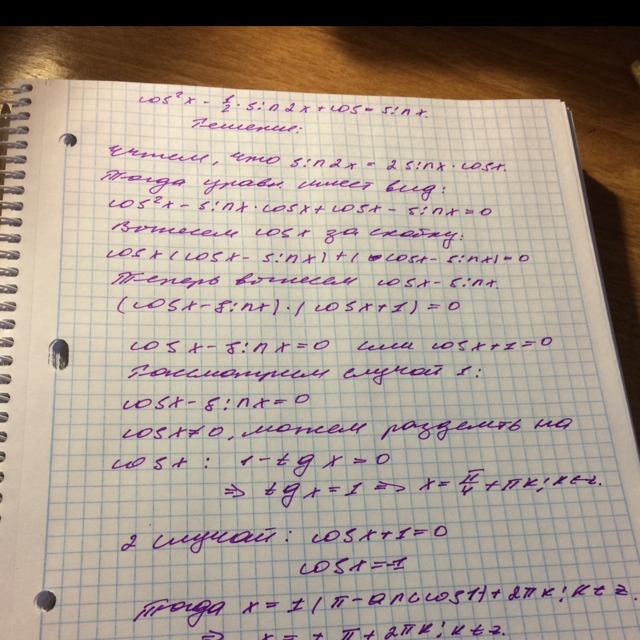 cos²x - 1/2 · sin2x + cos = sinx.
Решение:
Учтем, что sin2x = 2sinx · cosx.
Тогда уравн. имеет вид:
cos²x - sinx · cosx + cosx - sinx = 0
Вынесем cosx за скобку:
cosx(cosx - sinx) + (cosx - sinx) = 0
Теперь вынесем cosx - sinx.
(cosx - sinx) · (cosx + 1) = 0
cosx - sinx = 0 или cosx + 1 = 0
Рассмотрим случай 1:
cosx - sinx = 0
cosx ≠ 0, можем разделить на
cosx: 1 - tgx = 0
⇒ tgx = 1 ⇒ x = π/4 + πk; k ∈ z.
2 случай: cosx + 1 = 0
cosx = -1
Тогда x = ±(π - arccos1) + 2πk; k ∈ z.
⇒ x = ± π + 2πk; k ∈ z.